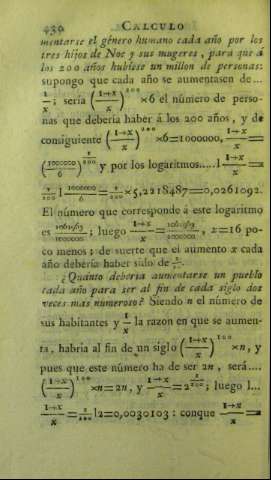 430 CALCULO
mentarse el género humano cada año por los
tres hijos de Noe y sus mugeres, para que á
los 200 años hubiese un millon de personas:
supongo que cada año se aumentasen de...
1/x; seria (1+x/x)^200 ×6 el número de perso-
nas que debería haber á los 200 años, y de
consiguiente (1+x/x)^200 ×6=1000000, 1+x/x=
(1000000/6)^1/200 y por los logaritmos.....l 1+x/x=
1/200 l 1000000/6=1/200×5,2218487=0,0261092.
El número que corresponde á este logaritmo
es 1061963/1000000; luego 1+x/x=1061963/1000000, x=16 po-
co menos; de suerte que el aumento x cada
año debería haber sido de 1/16.
¿Quanto debería aumentarse un pueblo
cada año para ser al fin de cada siglo dos
veces mas numeroso? Siendo n el número de
sus habitantes y 1/x la razon en que se aumen-
ta, habria al fin de un siglo (1+x/x)^100 ×n, y
pues que este número ha de ser 2n, será....
(1+x/x)^100 ×n=2n, y 1+x/x=2^1/100; luego l...
1+x/x=1/100 l2=0,0030103: conque 1+x/x=